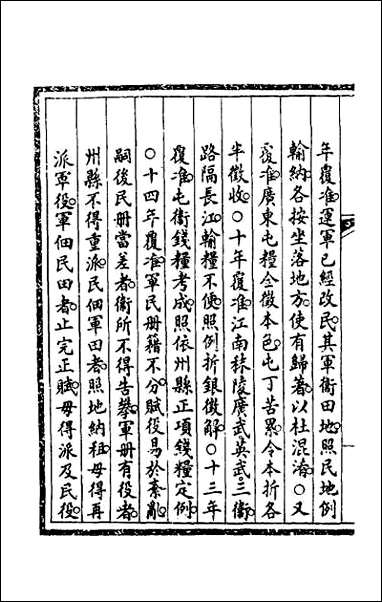 年覆准運軍已經改民其軍衛田地照民地例
輸納各按坐落地方使有歸著以杜混淆○又
覆准廣東屯糧仝徵本色屯丁苦累令本折各
半徵收○十年覆准江南秣陵廣武英武三衛
路隔長江輸糧不便照例折銀徵解○十三年
覆准屯衛錢糧考成照依州縣正項錢糧定例
○十四年覆准軍民册籍不分賦役易於紊亂
嗣後民册當差者衛所不得告攀軍册有役者
州縣不得重派民佃軍田者照地納租毋得再
派軍役軍佃民田者止完正賦毋得派及民役